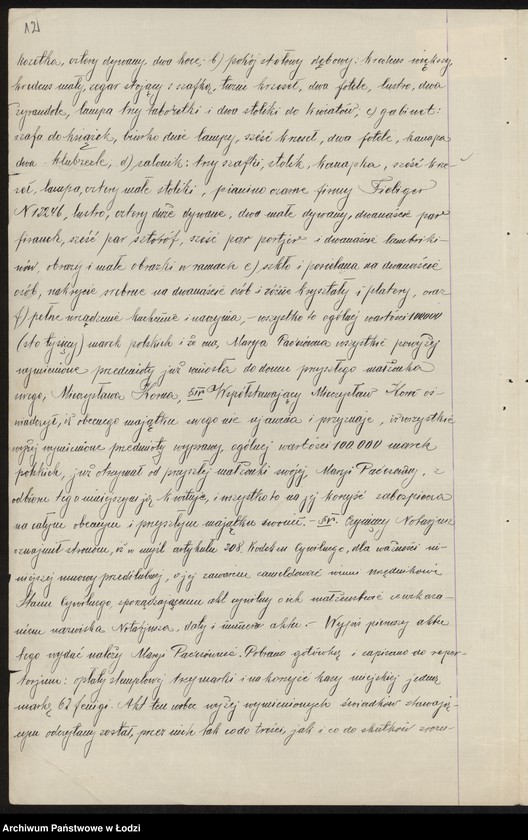 121
kozetka, cztery dywany, dwa koce, b) pokój stołowy dębowy: kredens większy,
kredens mały, zegar stojący z szafką, tuzin krzeseł, dwa fotele, lustro, dwa
żyrandole, lampa trzy taboretki i dwa stoliki do kwiatów, c) gabinet:
szafa do książek, biurko dwie lampy, sześć krzeseł, dwa fotele, kanapa
dwa klubzecle, d) salonik: trzy szafki, stolik, kanapka, sześć krze-
seł, lampa, cztery małe stoliki, pianino czarne firmy
N 12246, lustro, cztery duże dywane, dwa małe dywany, dwanaście par
firanek, sześć par sztor, sześć par portjer i dwanaście lambreki-
nów, obrazy i małe obrazki w ramach e) szkło i porcelana na dwanaście
osób, nakrycie srebrne na dwanaście osób i różne kryształy i platery, oraz
f) pełne urządzenie kuchenne i naczynia, – wszystko to ogólnej wartości 100000
(sto tysięcy) marek polskich i że ona, Marya Paciorówna wszystkie powyżej
wymienione przedmioty już wniosła do domu przyszłego małżonka
swego, Mieczysława Korna, § III Współstawający Mieczysław Korn oś-
wiadczył, iż obecnego majątku swego nie ujawnia i przyznaje, iż wszystkie
wyżej wymienione przedmioty wyprawy, ogólnej wartości 100.000 marek
polskich, już otrzymał od przyszłej małżonki swojej Maryi Paciorówny, z
odbioru tego niniejszym ją kwituje, i wszystko to na jej korzyść zabezpiecza
na całym obecnym i przyszłym majątku swoim. – § IV. Czyniący Notarjusz
oznajmił stronom, iż w myśl artykułu 208 Kodeksu Cywilnego, dla ważności ni-
niejszej umowy przedślubnej, o jej zawarciu zameldować winni urzędnikowi
Stanu Cywilnego, sporządzającemu akt cywilny o ich małżeństwie z wskaza-
niem nazwiska Notarjusza, daty i numeru aktu. – Wypis pierwszy aktu
tego wydać należy Maryi Paciorównie. Pobrano gotówką i zapisano do reper-
torjum: opłaty stemplowej trzy marki i na korzyść kasy miejskiej jedną
markę 62 fenigi. Akt ten wobec wyżej wymienionych świadków stawają-
cym odczytany został, przez nich tak co do treści, jak i co do skutków zrozu-
Archiwum Państwowe w Łodzi
szukajwarchiwach.gov.pl